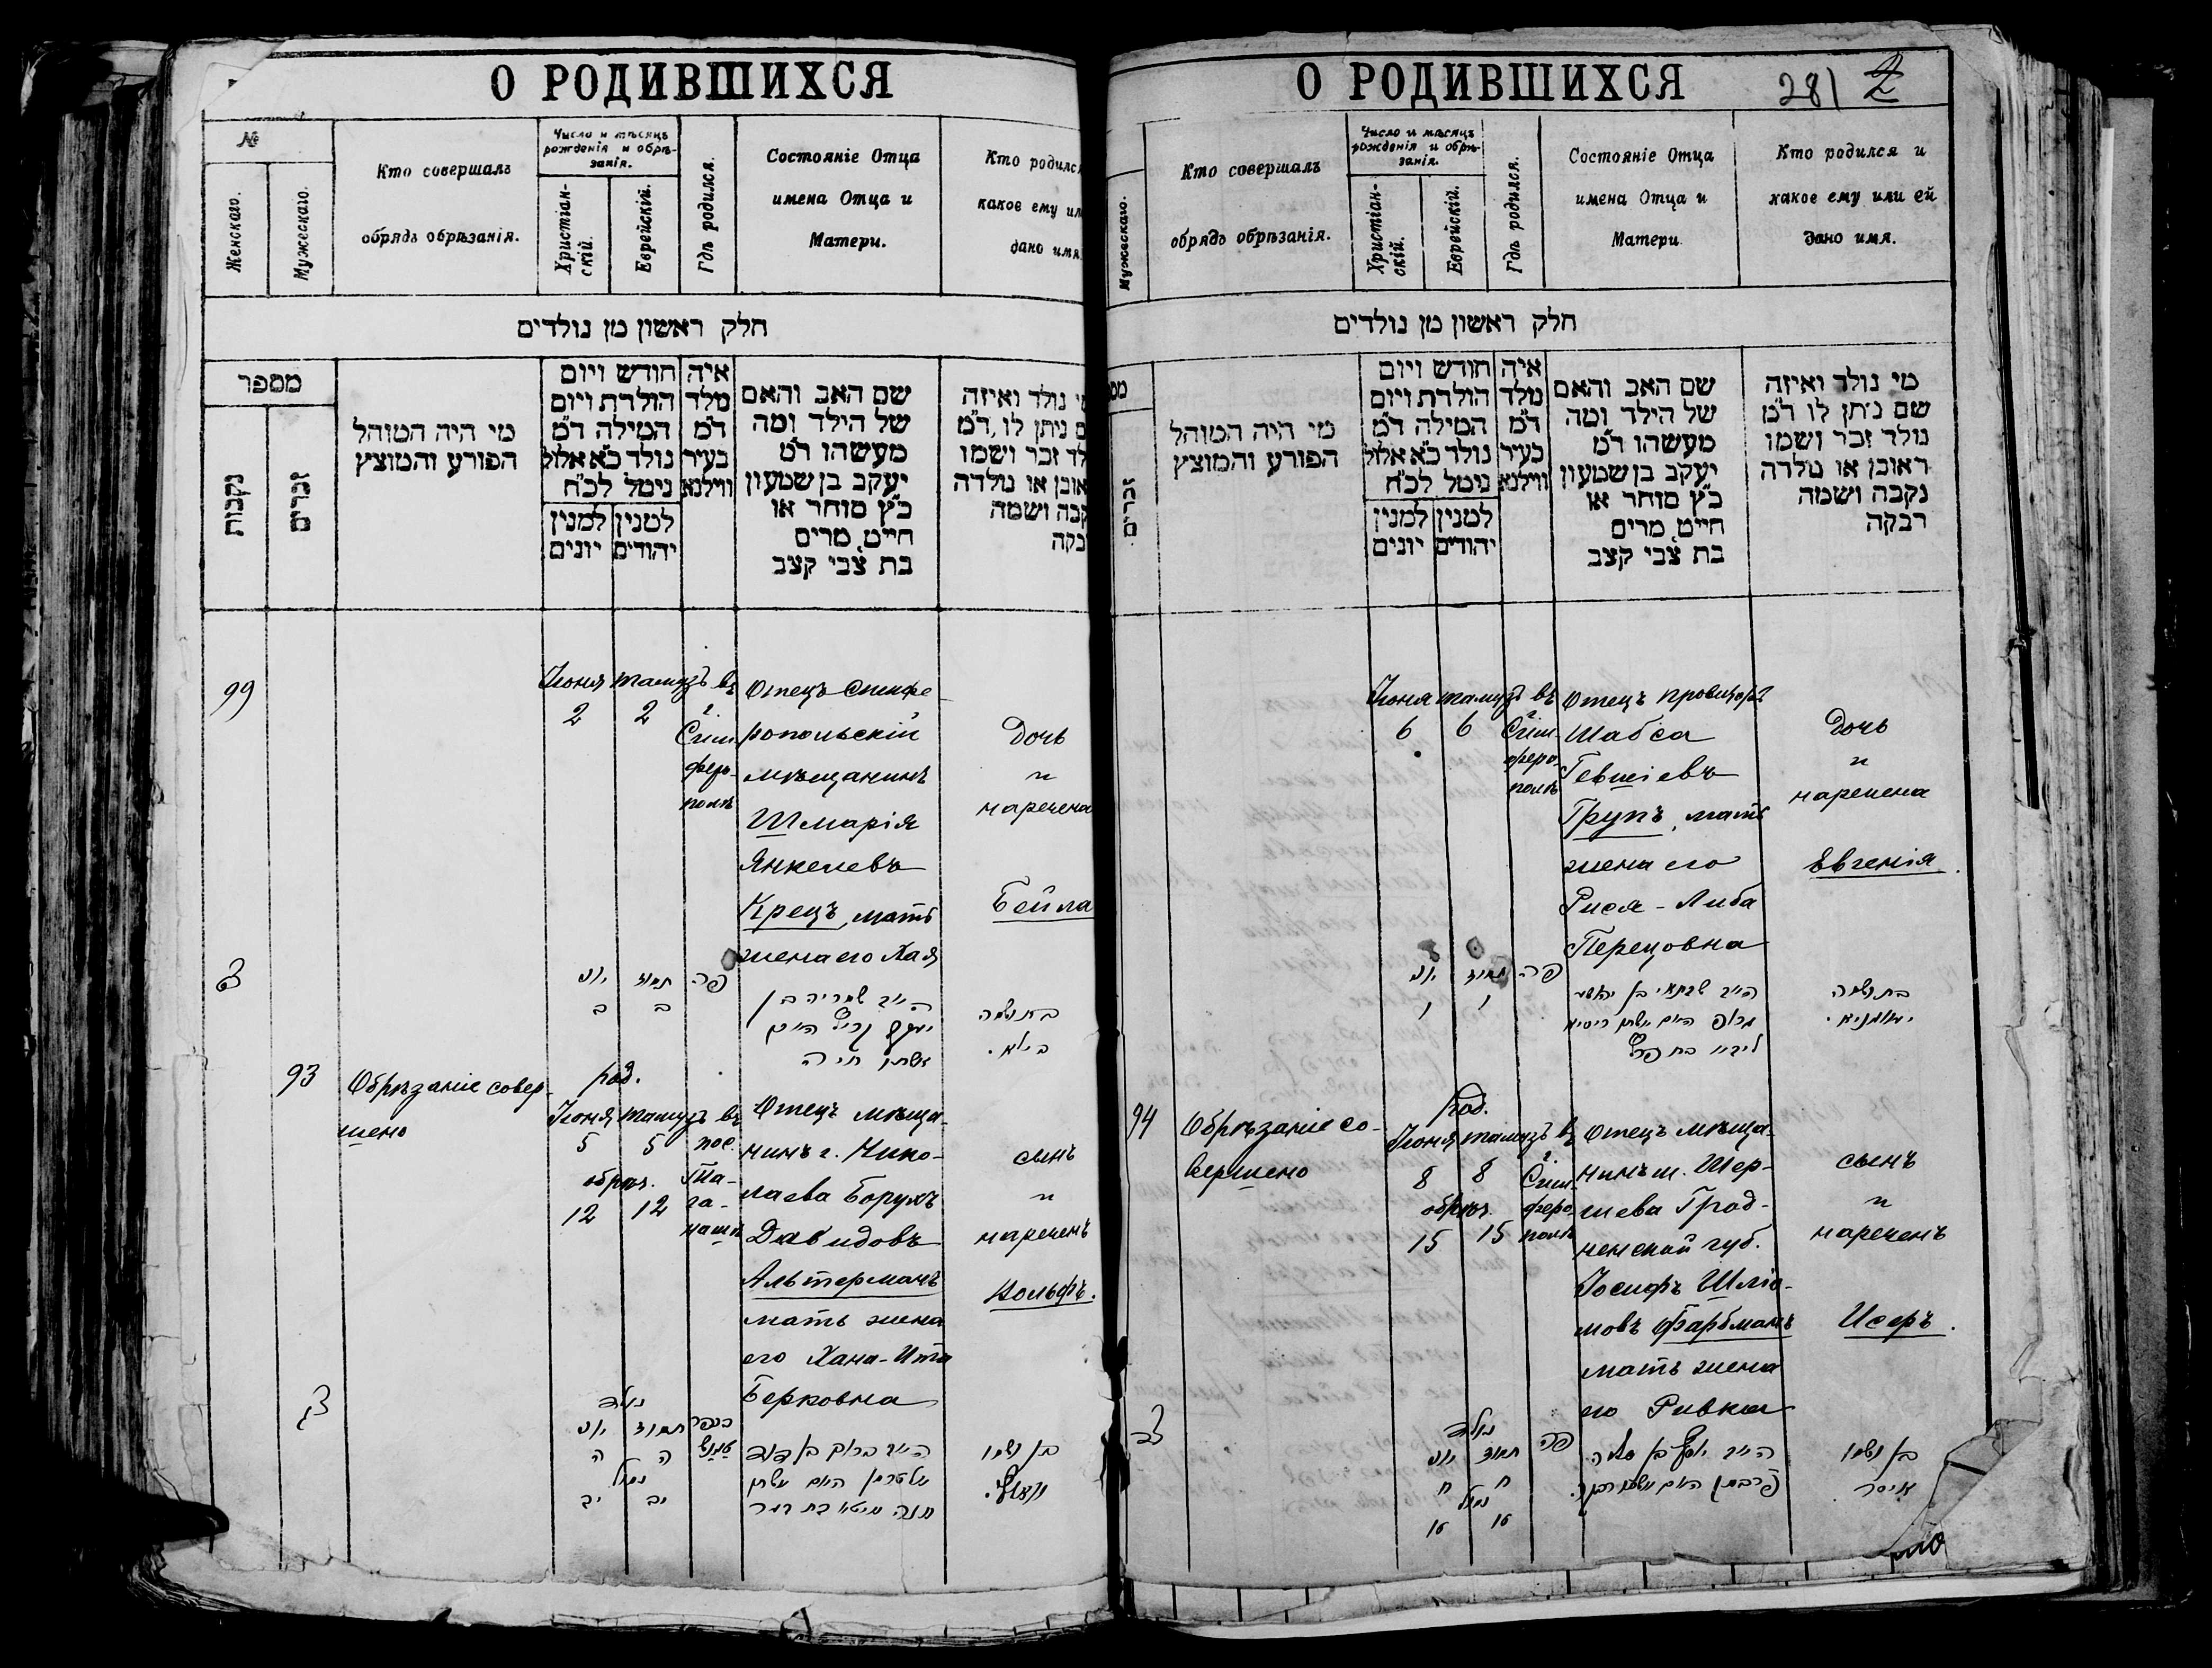 О РОДИВШИХСЯ
№
Женскаго.
Мужескаго.
Кто совершалъ
обрядъ обрѣзанія.
Число и мѣсяцъ
рожденія и обрѣ-
занія.
Христіан-
скій.
Еврейскій.
Гдѣ родился.
Состояніе Отца
имена Отца и
Матери.
Кто родился
какое ему или
дано имя.
חלק ראשון מן נולדים
מספר
נקבות
זכרים
מי היה המוהל
הפורע והמוצץ
חודש ויום
הולדת ויום
המילה ד״מ
נולד כ״א אלול
ניטל לכ״ח
למנין
יהודים
למנין
יונים
איה
נולד
ד״מ
בעיר
ווילנא
שם האב והאם
של הילד ומה
מעשהו ד״מ
יעקב בן שמעון
כ״ץ סוחר או
חייט, מרים
בת צבי קצב
מי נולד ואיזה
שם ניתן לו, ד״מ
נולד זכר ושמו
ראובן או נולדה
נקבה ושמה
רבקה
99
Іюня тамузъ въ
2 2 г.
Сим-
феро-
полѣ
Отецъ Симфе-
ропольскій
мѣщанинъ
Шмарія
Янкелевъ
Крецъ, мать
жена его Хая
Дочь
и
наречена
Бейла
יוני
תמוז
פה
ב
ב
אשתו חיה
בת ושמה
ביילא.
93
Обрѣзаніе совер-
шено
род.
Іюня тамузъ въ
5 5 пос.
обрѣз. Та-
12 12 га-
нашъ
Отецъ мѣща-
нинъ г. Нико-
лаева Борухъ
Давидовъ
Альтерманъ
мать жена
его Хана-Ита
Берковна
сынъ
и
нареченъ
Вольфъ.
נולד
יוני
תמוז
ה
ה
נמול
יב
יב
בן ושמו
О РОДИВШИХСЯ
281 2
Мужескаго.
Кто совершалъ
обрядъ обрѣзанія.
Число и мѣсяцъ
рожденія и обрѣ-
занія.
Христіан-
скій.
Еврейскій.
Гдѣ родился.
Состояніе Отца
имена Отца и
Матери
Кто родился и
какое ему или ей
дано имя.
חלק ראשון מן נולדים
זכרים
מי היה המוהל
הפורע והמוצץ
חודש ויום
הולדת ויום
המילה ד״מ
נולד כ״א אלול
ניטל לכ״ח
למנין
יהודים
למנין
יונים
איה
נולד
ד״מ
בעיר
ווילנא
שם האב והאם
של הילד ומה
מעשהו ד״מ
יעקב בן שמעון
כ״ץ סוחר או
חייט, מרים
בת צבי קצב
מי נולד ואיזה
שם ניתן לו ד״מ
נולד זכר ושמו
ראובן או נולדה
נקבה ושמה
רבקה
Іюня тамузъ въ
6 6 г.
Сим-
феро-
полѣ
Отецъ провизоръ
Шабса
Гевшіевъ
Групъ, мать
жена его
Рися-Либа
Перецовна
Дочь
и
наречена
Евгенія.
יוני
תמוז
פה
ו
ו
בת ושמה
94
Обрѣзаніе со-
вершено
род.
Іюня тамузъ въ
8 8 г.
Сим-
обрѣз. феро-
15 15 полѣ
Отецъ мѣща-
нинъ м. Шер-
шева Грод-
ненской губ.
Іосифъ Шліо-
мовъ Фарбманъ
мать жена
его Ривка
сынъ
и
нареченъ
Исеръ.
נולד
יוני
תמוז
פה
ח
ח
נמול
טו
טו
בן ושמו
איסר.